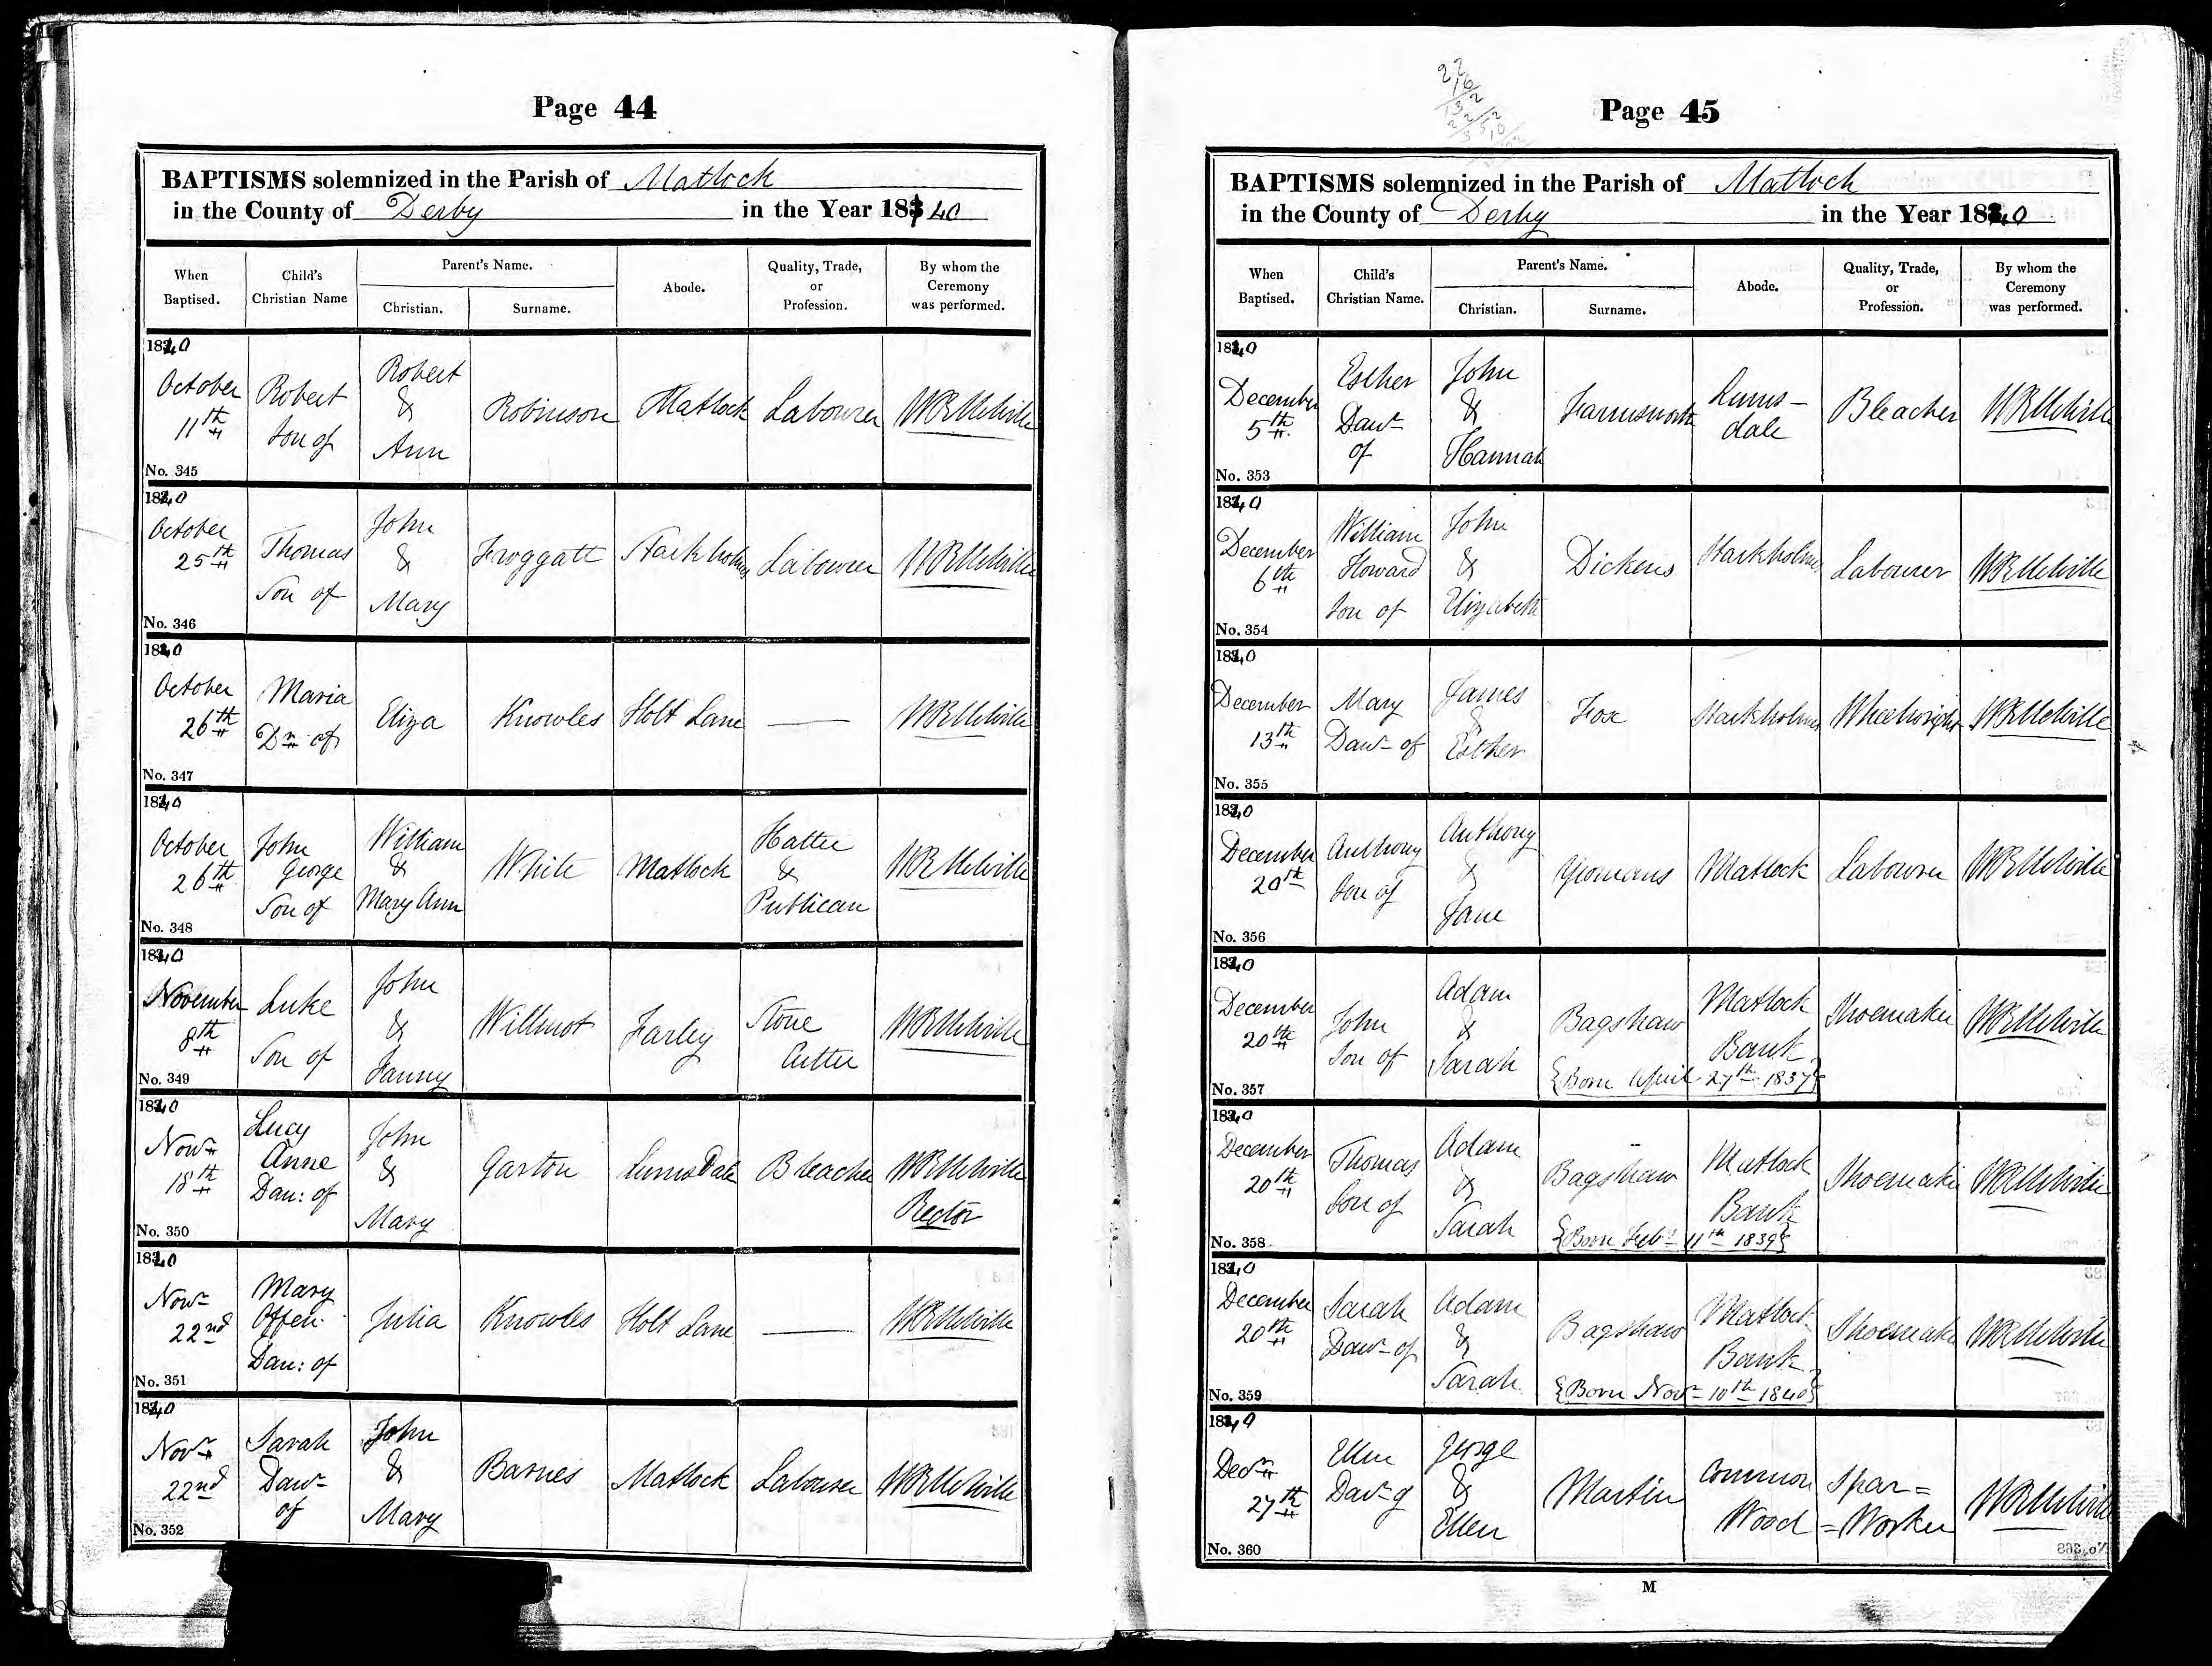 Page 44
BAPTISMS solemnized in the Parish of Matlock
in the County of Derby in the Year 1840
When Baptised.
Child's Christian Name
Parent's Name.
Christian.
Surname.
Abode.
Quality, Trade, or Profession.
By whom the Ceremony was performed.
1840
October 11th
Robert Son of
Robert & Ann
Robinson
Matlock
Labourer
WR Melville
No. 345
1840
October 25th
Thomas Son of
John & Mary
Froggatt
Starkholmes
Labourer
WR Melville
No. 346
1840
October 26th
Maria Dr of
Eliza
Knowles
Holt Lane
—
WR Melville
No. 347
1840
October 26th
John George Son of
William & Mary Ann
White
Matlock
Hatter & Publican
WR Melville
No. 348
1840
November 8th
Luke Son of
John & Fanny
Willmot
Farley
Stone Cutter
WR Melville
No. 349
1840
Novr 18th
Lucy Anne Dau: of
John & Mary
Garton
Lums Dale
Bleacher
WR Melville Rector
No. 350
1840
Novr 22nd
Mary Dau: of
Julia
Knowles
Holt Lane
—
WR Melville
No. 351
1840
Novr 22nd
Sarah Daur of
John & Mary
Barnes
Matlock
Labourer
WR Melville
No. 352
Page 45
BAPTISMS solemnized in the Parish of Matlock
in the County of Derby in the Year 1840
When Baptised.
Child's Christian Name.
Parent's Name.
Christian.
Surname.
Abode.
Quality, Trade, or Profession.
By whom the Ceremony was performed.
1840
December 5th
Esther Daur of
John & Hannah
Farnsworth
Lums-dale
Bleacher
WR Melville
No. 353
1840
December 6th
William Howard Son of
John & Elizabeth
Dickens
Starkholmes
Labourer
WR Melville
No. 354
1840
December 13th
Mary Daur of
James & Esther
Fox
Starkholmes
Wheelwright
WR Melville
No. 355
1840
December 20th
Anthony Son of
Anthony & Jane
Yeomans
Matlock
Labourer
WR Melville
No. 356
1840
December 20th
John Son of
Adam & Sarah
Bagshaw
Matlock Bank
Shoemaker
WR Melville
{Born April 27th 1837}
No. 357
1840
December 20th
Thomas Son of
Adam & Sarah
Bagshaw
Matlock Bank
Shoemaker
WR Melville
{Born Febr 11th 1839}
No. 358
1840
December 20th
Sarah Daur of
Adam & Sarah
Bagshaw
Matlock Bank
Shoemaker
WR Melville
{Born Novr 10th 1840}
No. 359
1840
Decr 27th
Ellen Daur of
George & Ellen
Martin
Common Wood
Spar= =Worker
WR Melville
No. 360
M